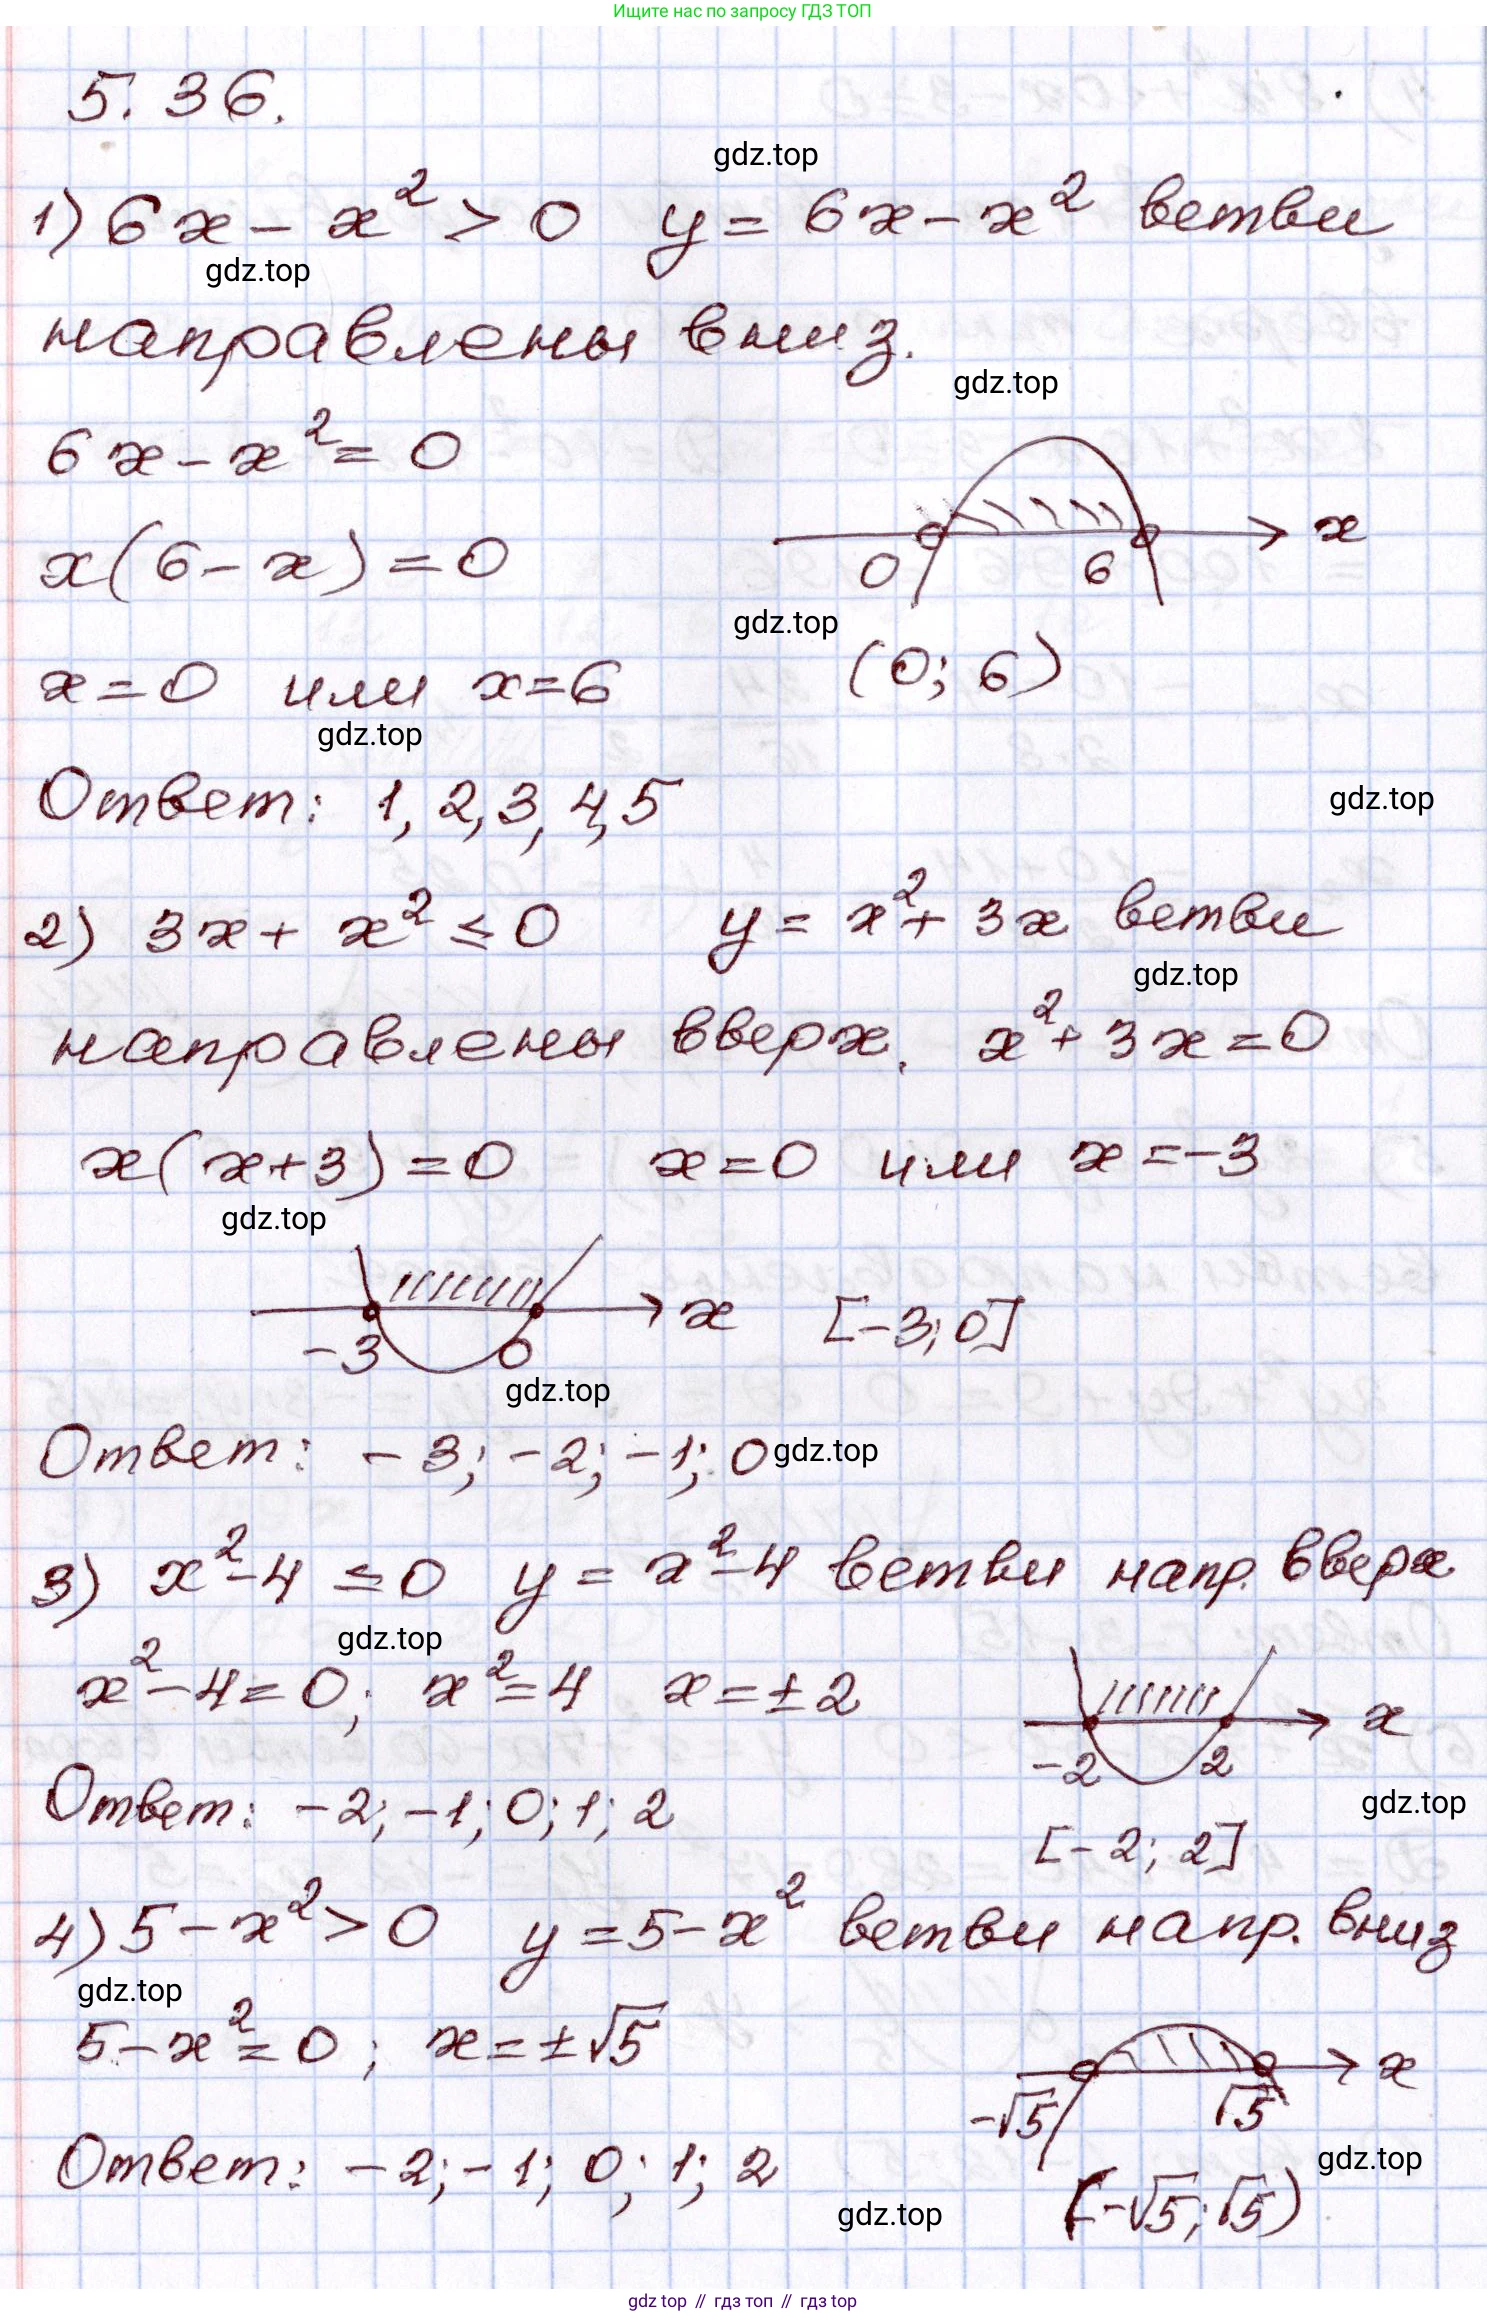 Ищите нас по запросу ГДЗ ТОП
5.36.
gdz.top
1) 6x - x² > 0 y = 6x - x² ветви
gdz.top
направлены вниз.
gdz.top
6x - x² = 0
x(6 - x) = 0
x
0 6
gdz.top
x = 0 или x = 6 (0; 6)
gdz.top
Ответ: 1, 2, 3, 4, 5
gdz.top
2) 3x + x² ≤ 0 y = x² + 3x ветви
gdz.top
направлены вверх. x² + 3x = 0
x(x+3) = 0 x = 0 или x = -3
gdz.top
x [-3; 0]
-3 0
gdz.top
Ответ: -3; -2; -1; 0
gdz.top
3) x² - 4 ≤ 0 y = x² - 4 ветви напр. вверх
gdz.top
x² - 4 = 0; x² = 4 x = ±2
x
-2 2
gdz.top
Ответ: -2; -1; 0; 1; 2
[-2; 2]
4) 5 - x² > 0 y = 5 - x² ветви напр. вниз
gdz.top
5 - x² = 0; x = ±√5
x
-√5 √5
gdz.top
Ответ: -2; -1; 0; 1; 2
gdz.top
(-√5; √5)
gdz top // гдз топ // гдз top